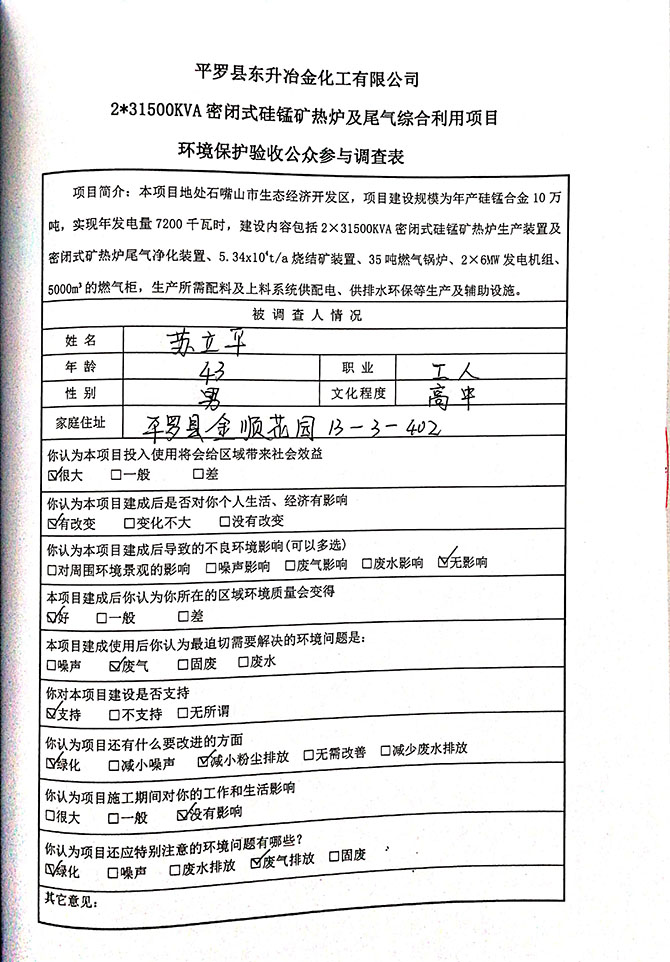 平罗县东升冶金化工有限公司
2*31500KVA 密闭式硅锰矿热炉及尾气综合利用项目
环境保护验收公众参与调查表
项目简介：本项目地处石嘴山市生态经济开发区，项目建设规模为年产硅锰合金 10 万
吨，实现年发电量 7200 千瓦时，建设内容包括 2×31500KVA 密闭式硅锰矿热炉生产装置及
密闭式矿热炉尾气净化装置、5.34x10⁴t/a 烧结矿装置、35 吨燃气锅炉、2×6MW 发电机组、
5000m³ 的燃气柜，生产所需配料及上料系统供配电、供排水环保等生产及辅助设施。
被 调 查 人 情 况
姓 名 苏立平
年 龄 43 职 业 工人
性 别 男 文化程度 高中
家庭住址 平罗县金顺花园 13-3-402
你认为本项目投入使用将会给区域带来社会效益
☑很大 □一般 □差
你认为本项目建成后是否对你个人生活、经济有影响
☑有改变 □变化不大 □没有改变
你认为本项目建成后导致的不良环境影响(可以多选)
□对周围环境景观的影响 □噪声影响 □废气影响 □废水影响 ☑无影响
本项目建成后你认为你所在的区域环境质量会变得
☑好 □一般 □差
本项目建成使用后你认为最迫切需要解决的环境问题是：
□噪声 ☑废气 □固废 □废水
你对本项目建设是否支持
☑支持 □不支持 □无所谓
你认为项目还有什么要改进的方面
☑绿化 □减小噪声 ☑减小粉尘排放 □无需改善 □减少废水排放
你认为项目施工期间对你的工作和生活影响
□很大 □一般 ☑没有影响
你认为项目还应特别注意的环境问题有哪些？
☑绿化 □噪声 □废水排放 ☑废气排放 □固废
其它意见：